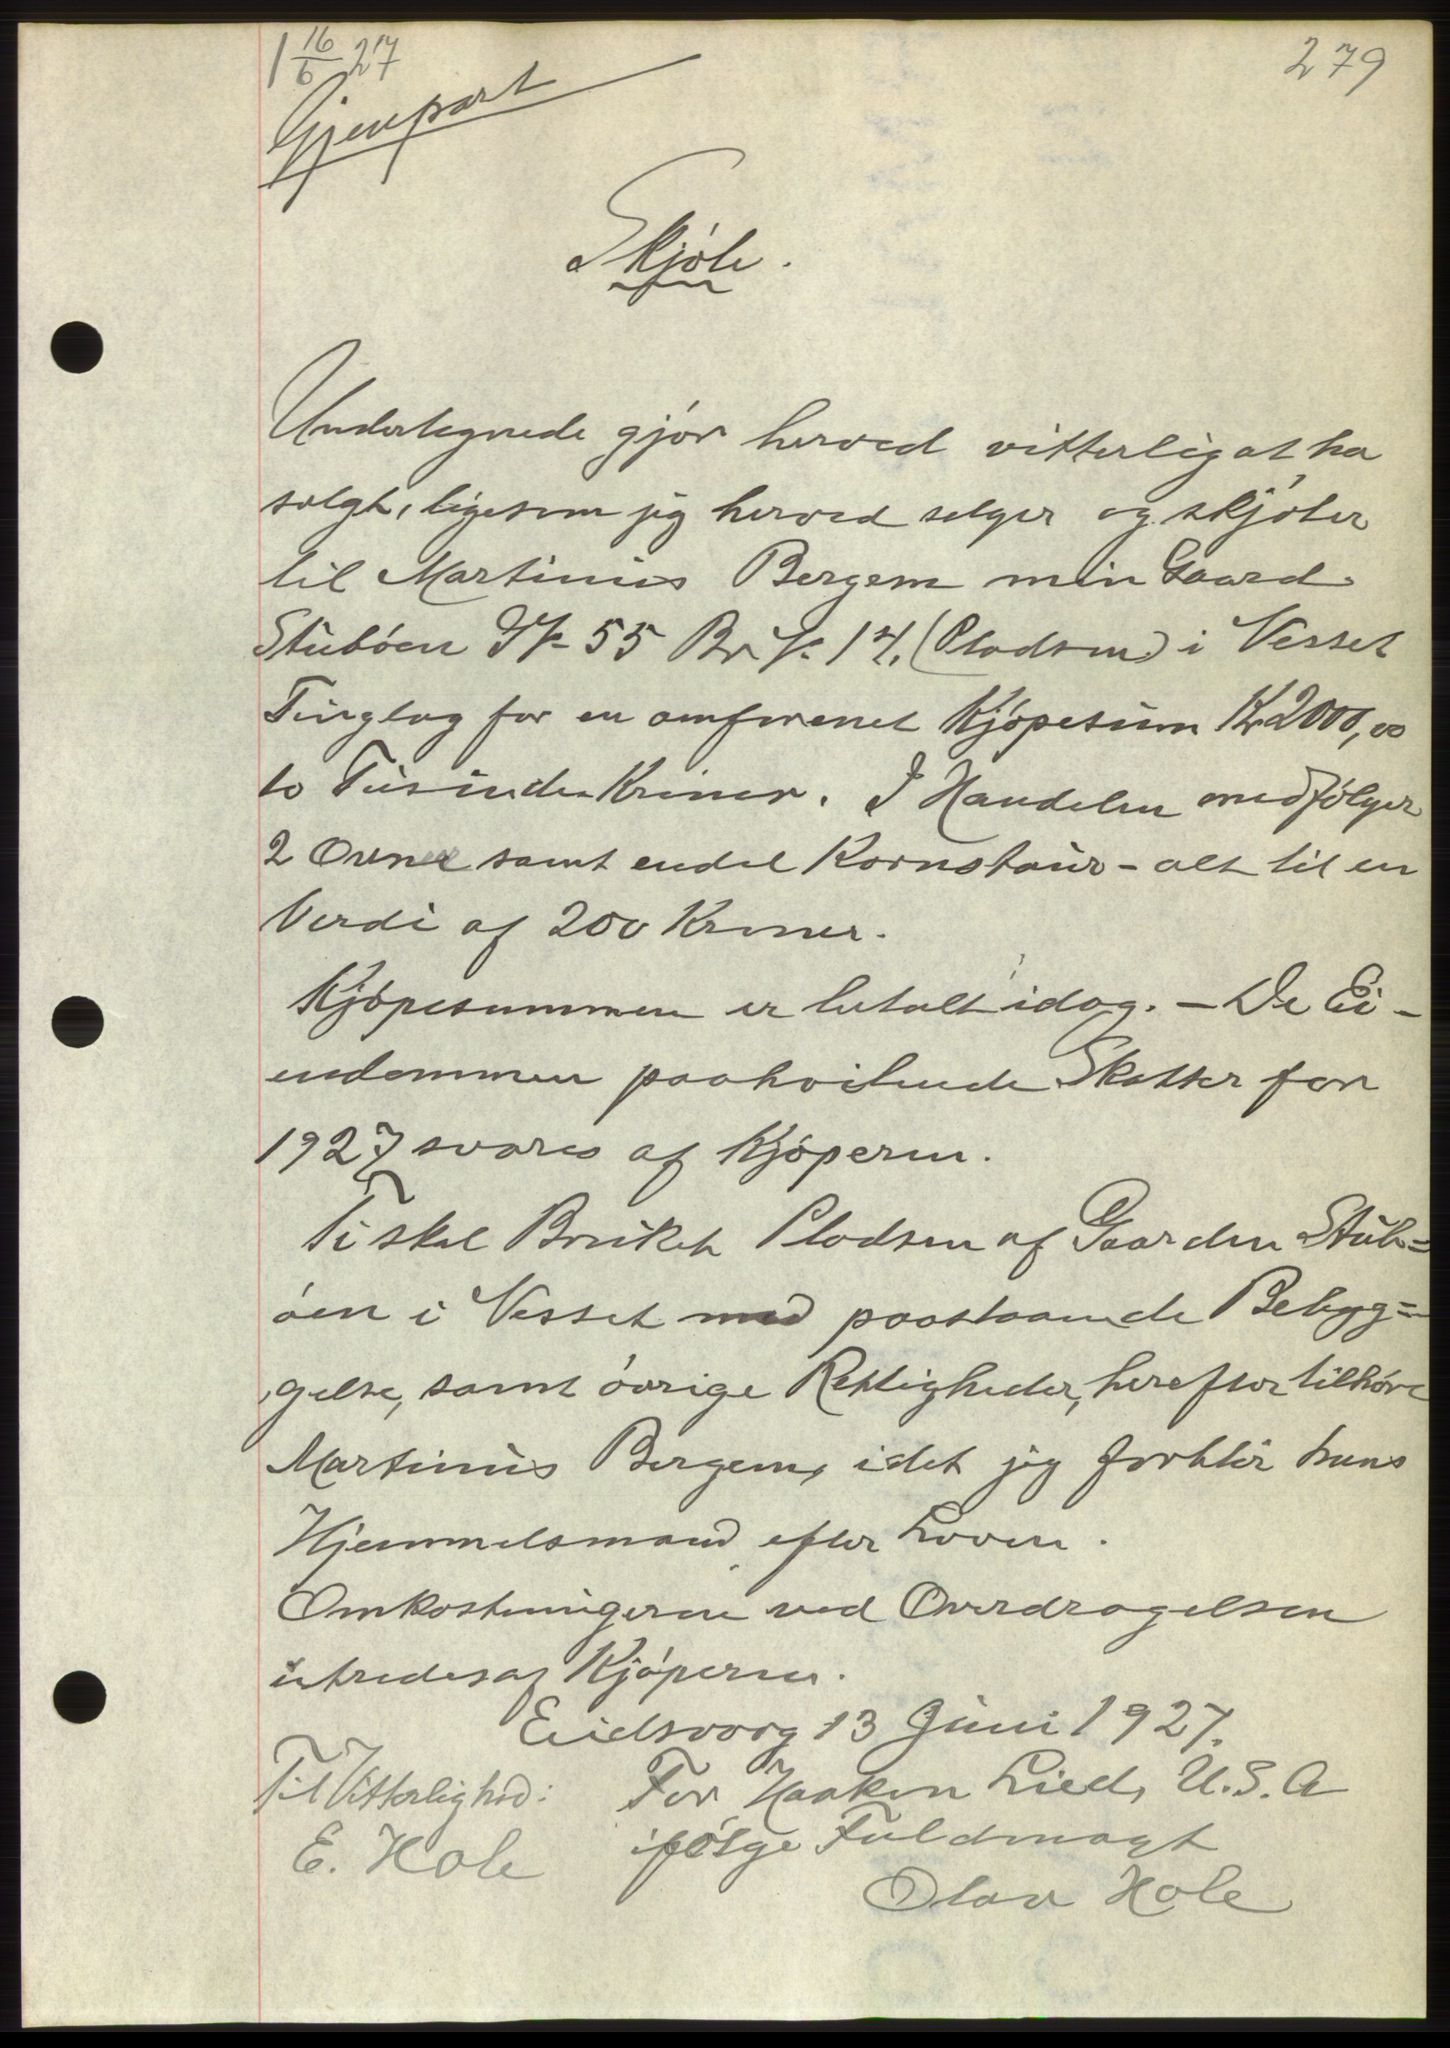 1 16/6 27
279
Gjenpart
Skjöte.
Undertegnede gjör herved vitterlig at ha
solgt, ligesom jeg herved selger og skjöter
til Martinius Bergem min Gaard
Stuböen G.No 55 Br.No. 14. (Pladsen) i Vesset
Tinglag for en omforenet Kjöpesum Kr 2000,00
to Tusinde Kroner. I Handelen medfölger
2 Ovner samt endel Kornstaur - alt til en
Verdi af 200 Kroner.
Kjöpesummen er betalt idag. - De Ei-
endommen paahvilende Skatter for
1927 svares af Kjöperen.
Ti skal Bruket Pladsen af Gaarden Stub=
öen i Vesset med paastaaende Bebyg=
gelse, samt övrige Rettigheder, herefter tilhöre
Martinus Bergem, idet jeg forblir hans
Hjemmelsmand efter Loven.
Omkostningerne ved Overdragelsen
utredes af Kjöperen.
Eidsvaag 13 Juni 1927.
Til Vitterlighed: For Haakon Lied, U.S.A
E. Hole ifölge Fuldmagt
Olav Hole